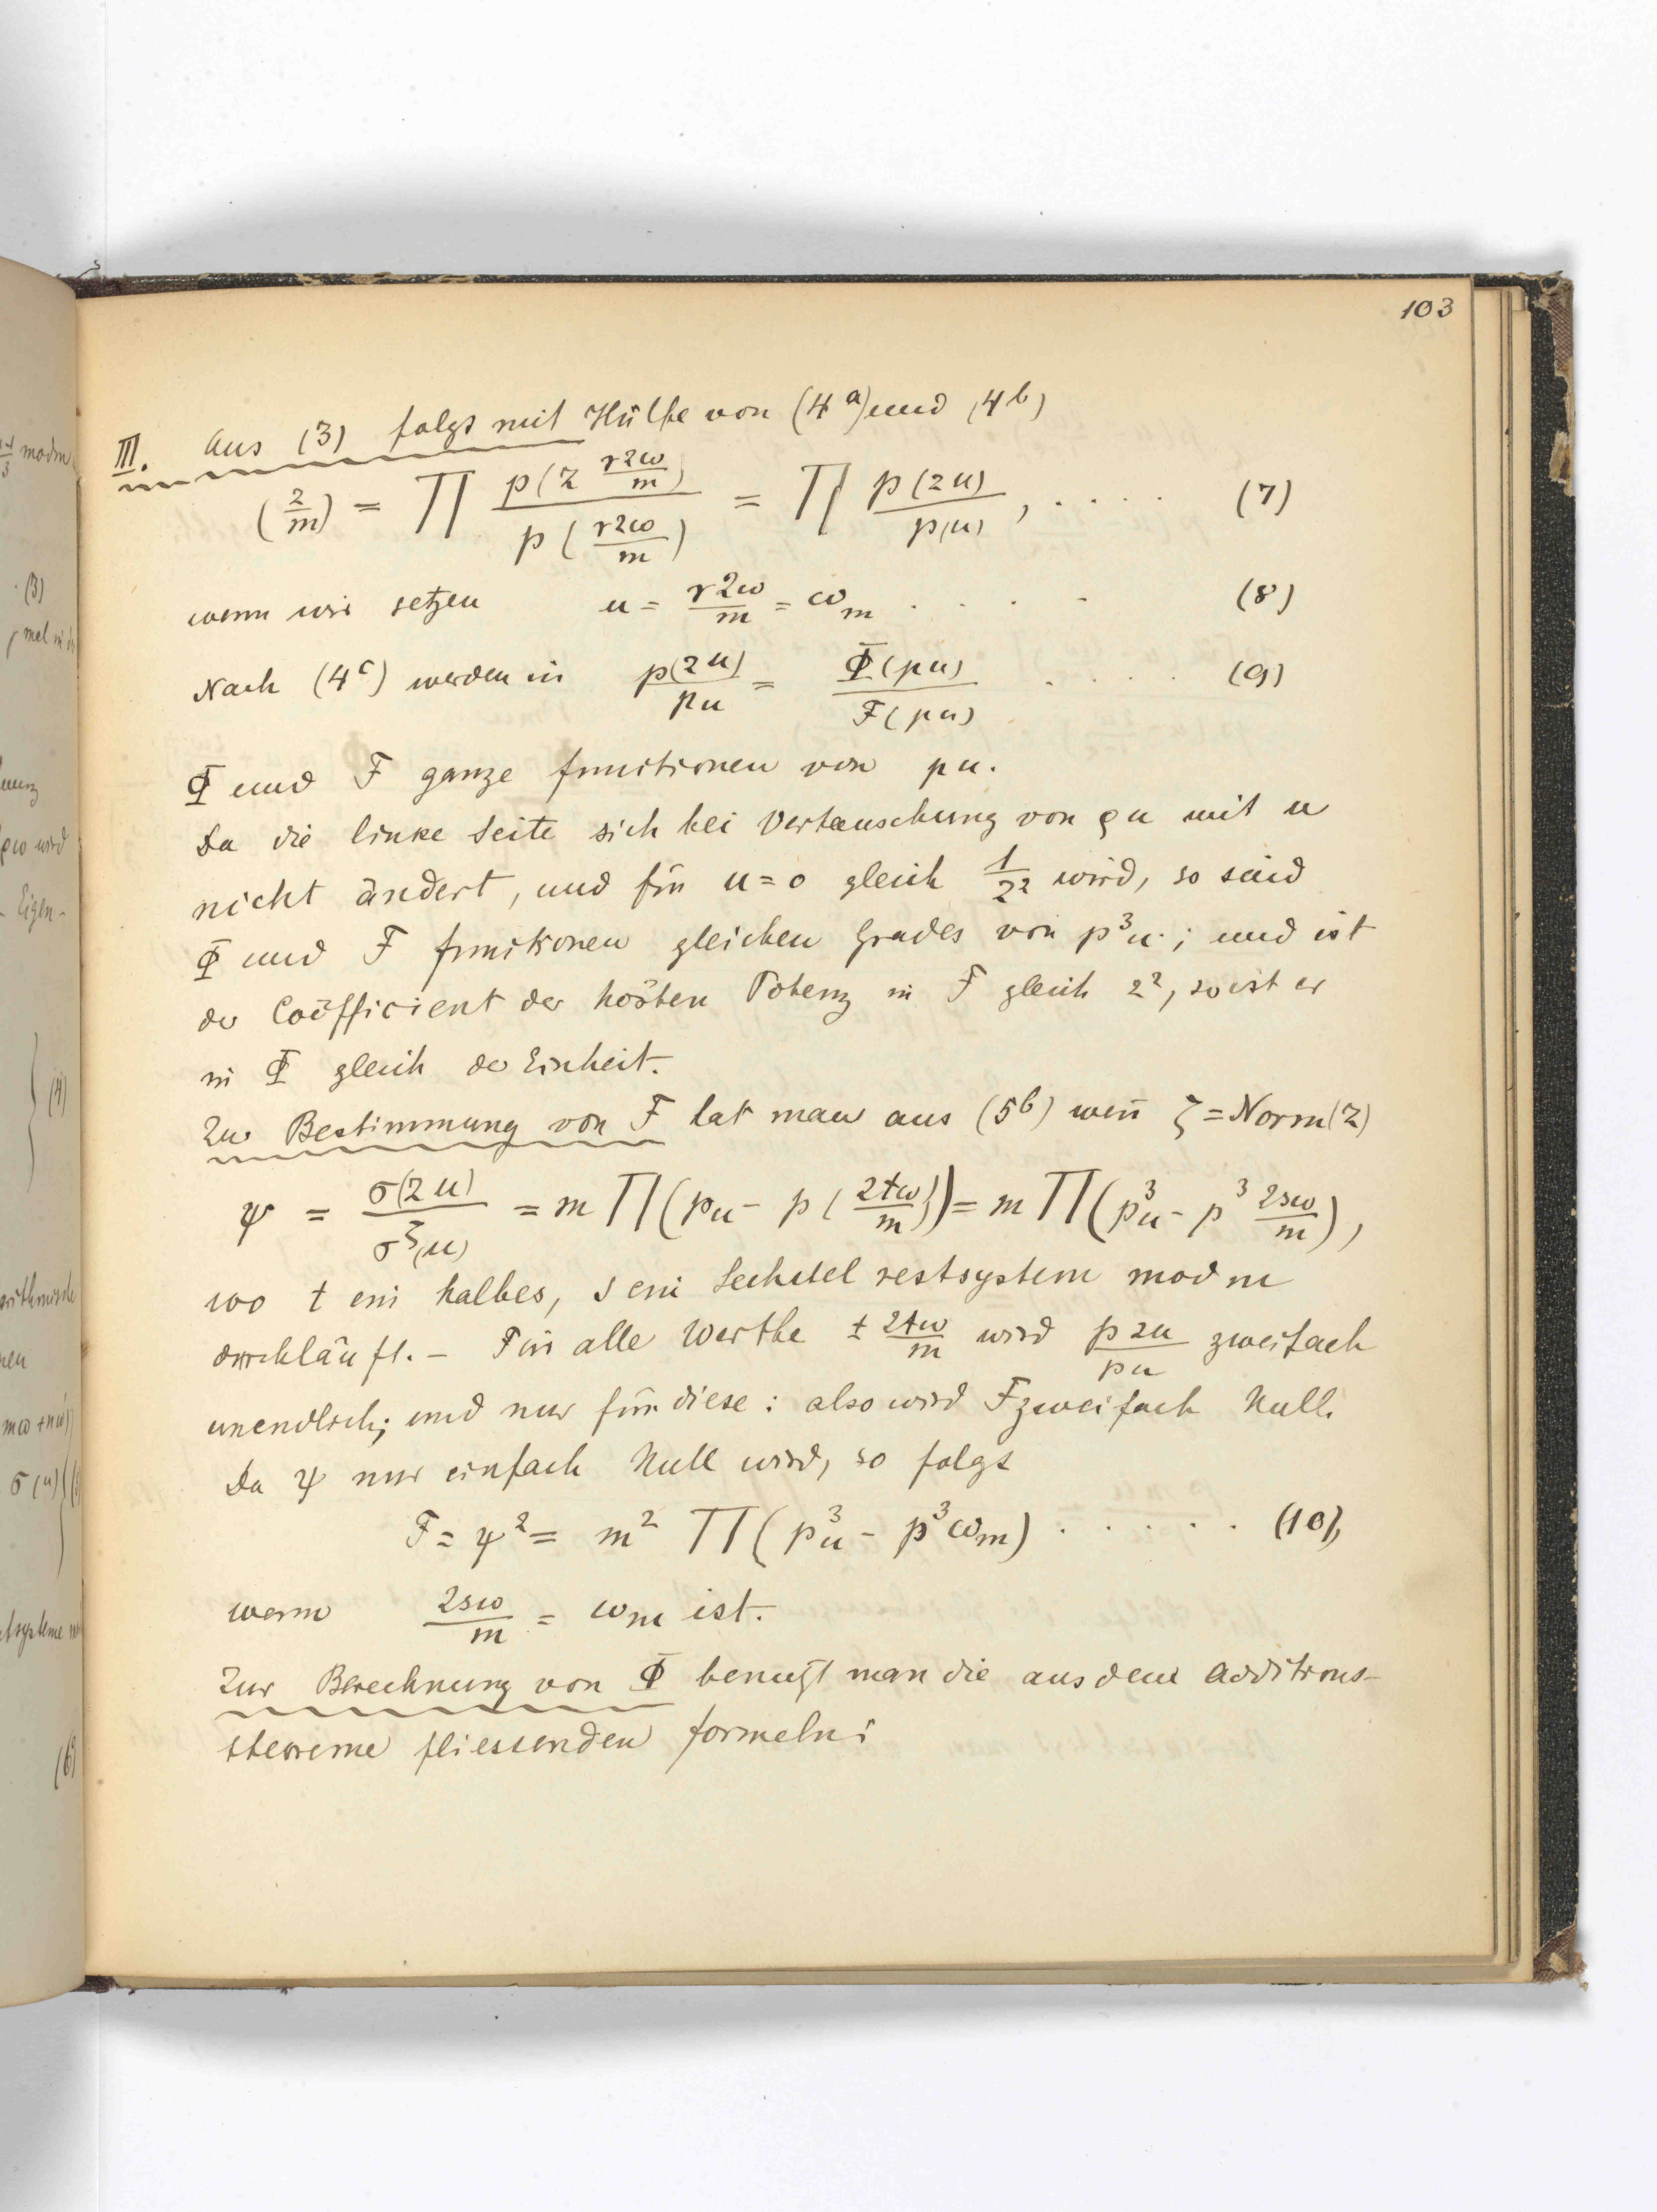 103
III. Aus (3) folgt mit Hülfe von (4ᵃ) und (4ᵇ)
(2/m) = ∏ p(2 r2ω/m) / p(r2ω/m) = ∏ p(2u)/p(u), . . . . (7)
wenn wir setzen u = r2ω/m = ω_m . . . . (8)
Nach (4ᶜ) werden in p(2u)/pu = Φ(pu)/F(pu) . . . . (9)
Φ und F ganze Functionen von pu.
Da die linke Seite sich bei Vertauschung von ρu mit u
nicht ändert, und für u=0 gleich 1/2² wird, so sind
Φ und F Funktionen gleichen Grades von p³u; und ist
der Coëfficient der hösten Potenz in F gleich 2², so ist er
in Φ gleich der Einheit.
Zur Bestimmung von F hat man aus (5ᵇ) wen̄ ζ = Norm(2)
ψ = σ(2u)/σ^ζ(u) = m ∏(pu - p(2tω/m)) = m ∏(p³u - p³ 2sω/m),
wo t ein halbes, s ein Sechstel restsystem mod m
durchläuft. – Für alle Werthe ± 2tω/m wird p2u/pu zweifach
unendlich; und nur für diese: also wird F zweifach Null.
Da ψ nur einfach Null wird, so folgt
F = ψ² = m² ∏(p³u - p³ω_m) . . . . . (10),
wenn 2sω/m = ω_m ist.
Zur Berechnung von Φ benutzt man die aus dem Additions-
theoreme fliessenden Formeln: